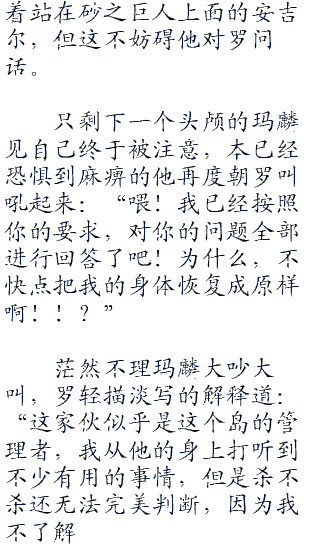 着站在砂之巨人上面的安吉
尔，但这不妨碍他对罗问
话。
只剩下一个头颅的玛麟
见自己终于被注意，本已经
恐惧到麻痹的他再度朝罗叫
吼起来：“喂！我已经按照
你的要求，对你的问题全部
进行回答了吧！为什么，不
快点把我的身体恢复成原样
啊！！？”
茫然不理玛麟大吵大
叫，罗轻描淡写的解释道：
“这家伙似乎是这个岛的管
理者，我从他的身上打听到
不少有用的事情，但是杀不
杀还无法完美判断，因为我
不了解